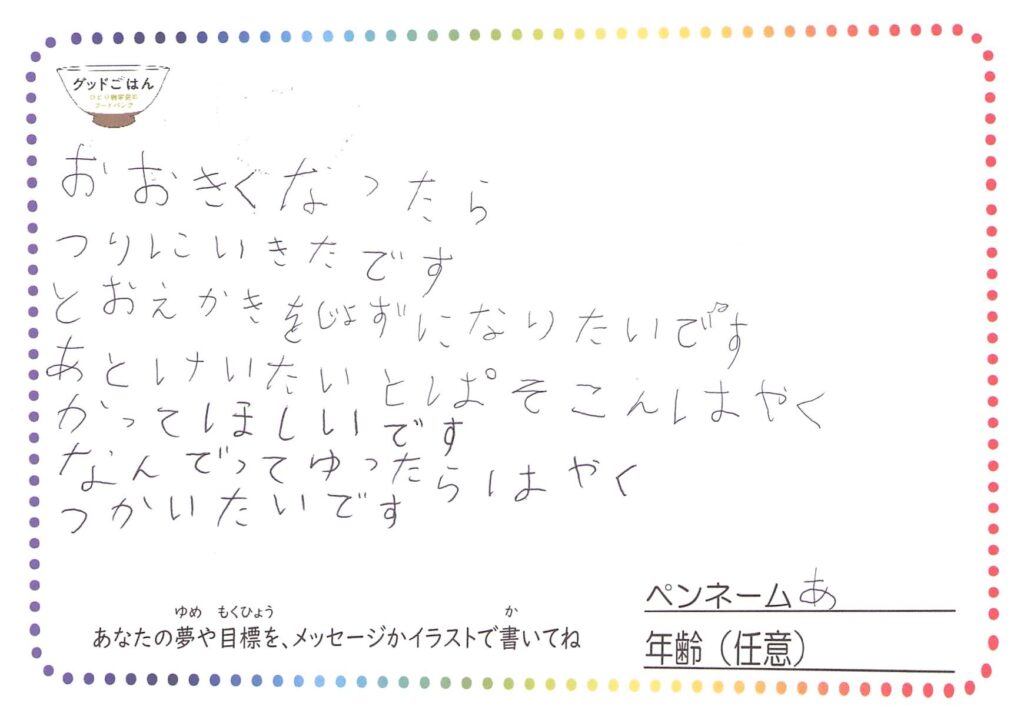 グッドごはん
ひとり親家庭の
フードバンク
おおきくなったら
つりにいきたです
とおえかきをじょずになりたいです
あとけいたいとぱそこんはやく
かってほしいです
なんでってゆったらはやく
つかいたいです
ゆめ もくひょう か
あなたの夢や目標を、メッセージかイラストで書いてね
ペンネーム あ
年齢（任意）